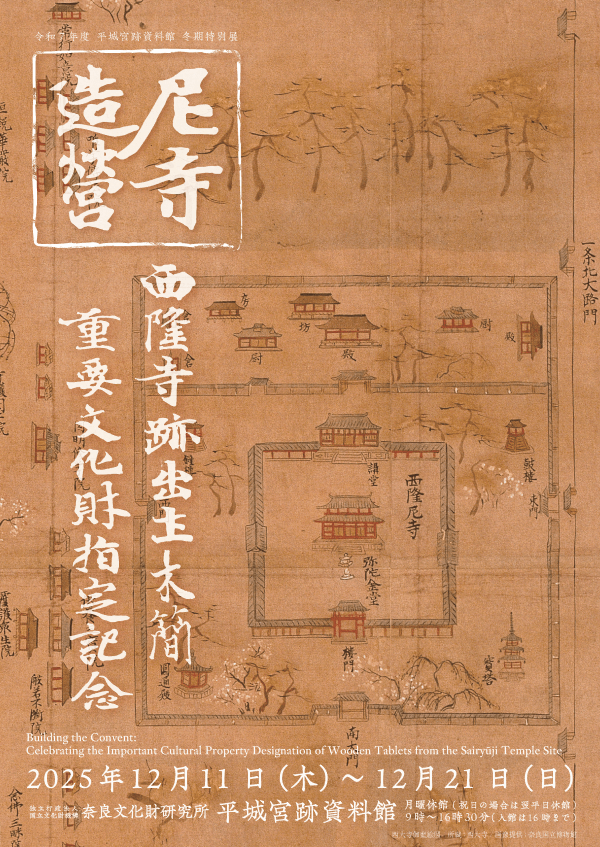 令和7年度 平城宮跡資料館 冬期特別展
尼寺
造營
西隆寺跡出土木簡
重要文化財指定記念
一条北大路門
房
坊
厨
殿
厨
殿
講堂
西隆尼寺
弥陀金堂
鼓樓
東門
樓門
寶塔
圓通殿
南大門
般若不動院
念佛三昧院
Building the Convent:
Celebrating the Important Cultural Property Designation of Wooden Tablets from the Sairyūji Temple Site
2025年12月11日(木)～12月21日(日)
独立行政法人
国立文化財機構
奈良文化財研究所 平城宮跡資料館
月曜休館(祝日の場合は翌平日休館)
9時～16時30分(入館は16時まで)